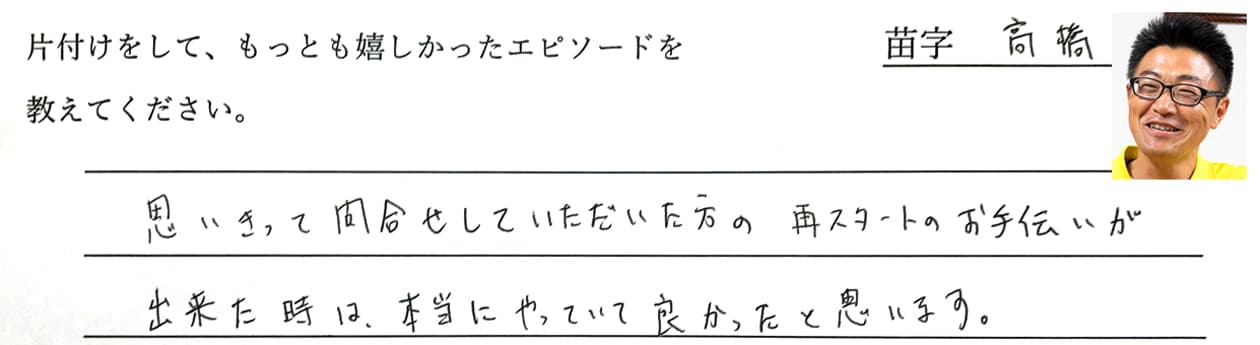 片付けをして、もっとも嬉しかったエピソードを
教えてください。
苗字 高橋
思いきって問合せしていただいた方の 再スタートのお手伝いが
出来た時は、本当にやっていて良かったと思います。